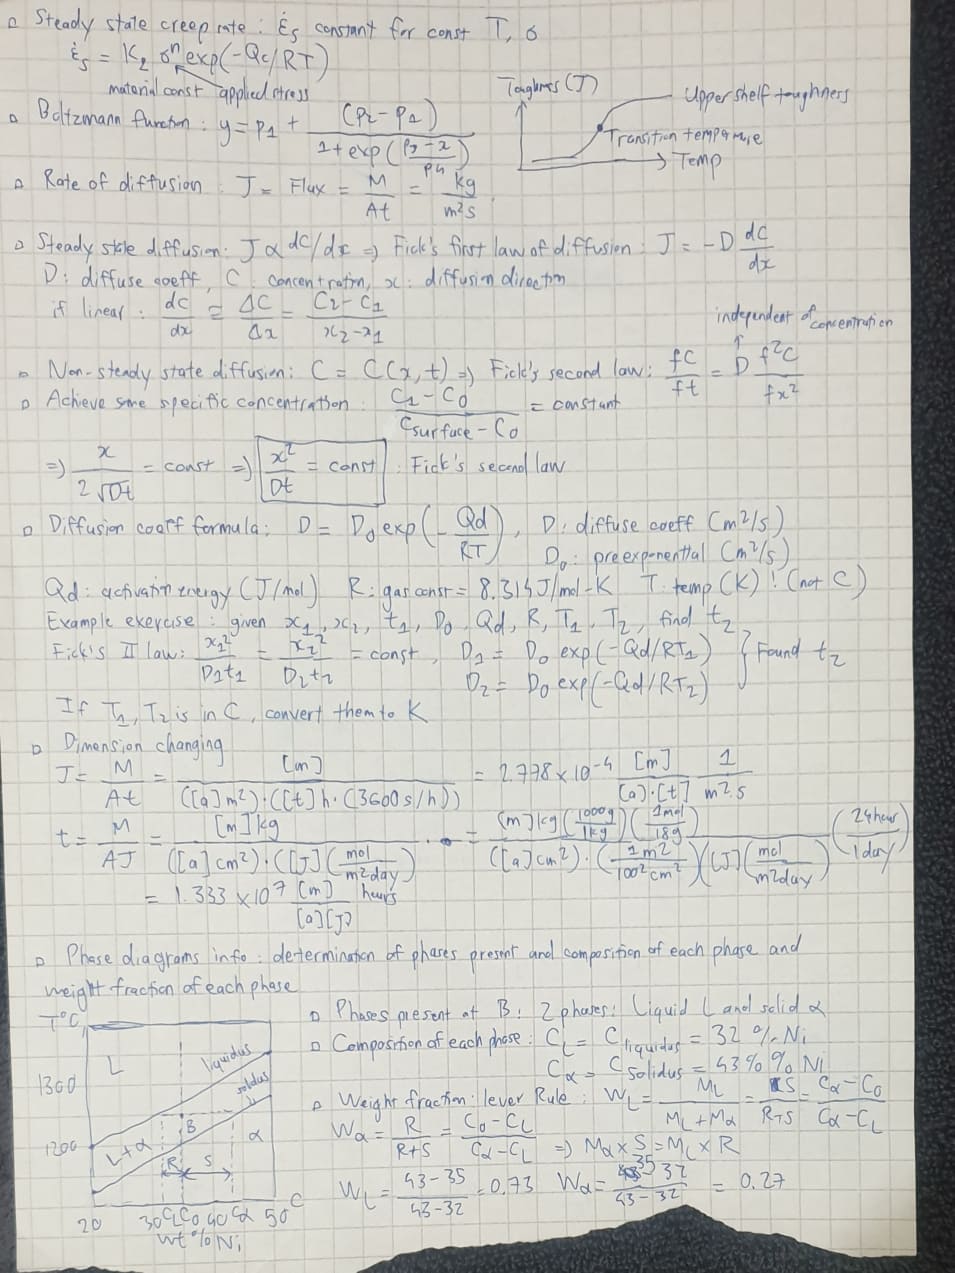 ▫ Steady state creep rate : ε̇s constant for const T, σ
ε̇s = K2 σ^n exp(-Qc/RT)
material const applied stress
Toughness (J)
Upper shelf toughness
Transition temperature
Temp
▫ Boltzmann function : y = p1 + (p2 - p1) / (1 + exp((p3 - x)/p4))
▫ Rate of diffusion : J = Flux = M/At = kg/m²s
▫ Steady state diffusion : J ∝ dC/dx ⇒ Fick's first law of diffusion : J = -D dC/dx
D: diffuse coeff, C : concentration, x : diffusion direction
if linear : dc/dx ≅ ΔC/Δx = (C2 - C1)/(x2 - x1)
independent of concentration
▫ Non-steady state diffusion : C = C(x,t) ⇒ Fick's second law : fC/ft = D f²C/fx²
▫ Achieve some specific concentration : (C1 - C0)/(Csurface - C0) = constant
⇒ x/(2√Dt) = const ⇒ x²/Dt = const : Fick's second law
▫ Diffusion coeff formula : D = D0 exp(-Qd/RT), D: diffuse coeff (m²/s)
D0: preexponential (m²/s)
Qd: activation energy (J/mol) R: gas const = 8.314 J/mol-K T: temp (K)! (not C)
Example exercise : given x1, x2, t1, D0, Qd, R, T1, T2, find t2
Fick's II law: x1²/D1t1 = x2²/D2t2 = const, D1 = D0 exp(-Qd/RT1) } Found t2
D2 = D0 exp(-Qd/RT2)
If T1, T2 is in C, convert them to K
▫ Dimension changing
J = M/At = [m]/(([a]m²)·([t]h·(3600s/h))) = 2.778×10⁻⁴ [m]/([a]·[t]) 1/(m²·s)
t = M/AJ = [m]kg/(([a]cm²)·([J](mol/m²day))) · = [m]kg(1000g/1kg)(1mol/18g)/(([a]cm²)·(1m²/100²cm²)([J](mol/m²day))) (24hour/1day)
= 1.333×10⁷ [m]/([a][J]) hours
▫ Phase diagrams info : determination of phases present and composition of each phase and
weight fraction of each phase
T°C
L
liquidus
1300
solidus
B
1200
L+α
α
R S
20 30 CL C0 40 Cα 50 C
wt% Ni
▫ Phases present at B: 2 phases: Liquid L and solid α
▫ Composition of each phase : CL = Cliquidus = 32 % Ni
Cα = Csolidus = 43% % Ni
▫ Weight fraction : lever Rule : WL = ML/(ML + Mα) = S/(R+S) = (Cα - C0)/(Cα - CL)
Wα = R/(R+S) = (C0 - CL)/(Cα - CL) ⇒ Mα × S = ML × R
WL = (43-35)/(43-32) = 0.73 Wα = (35-32)/(43-32) = 0.27